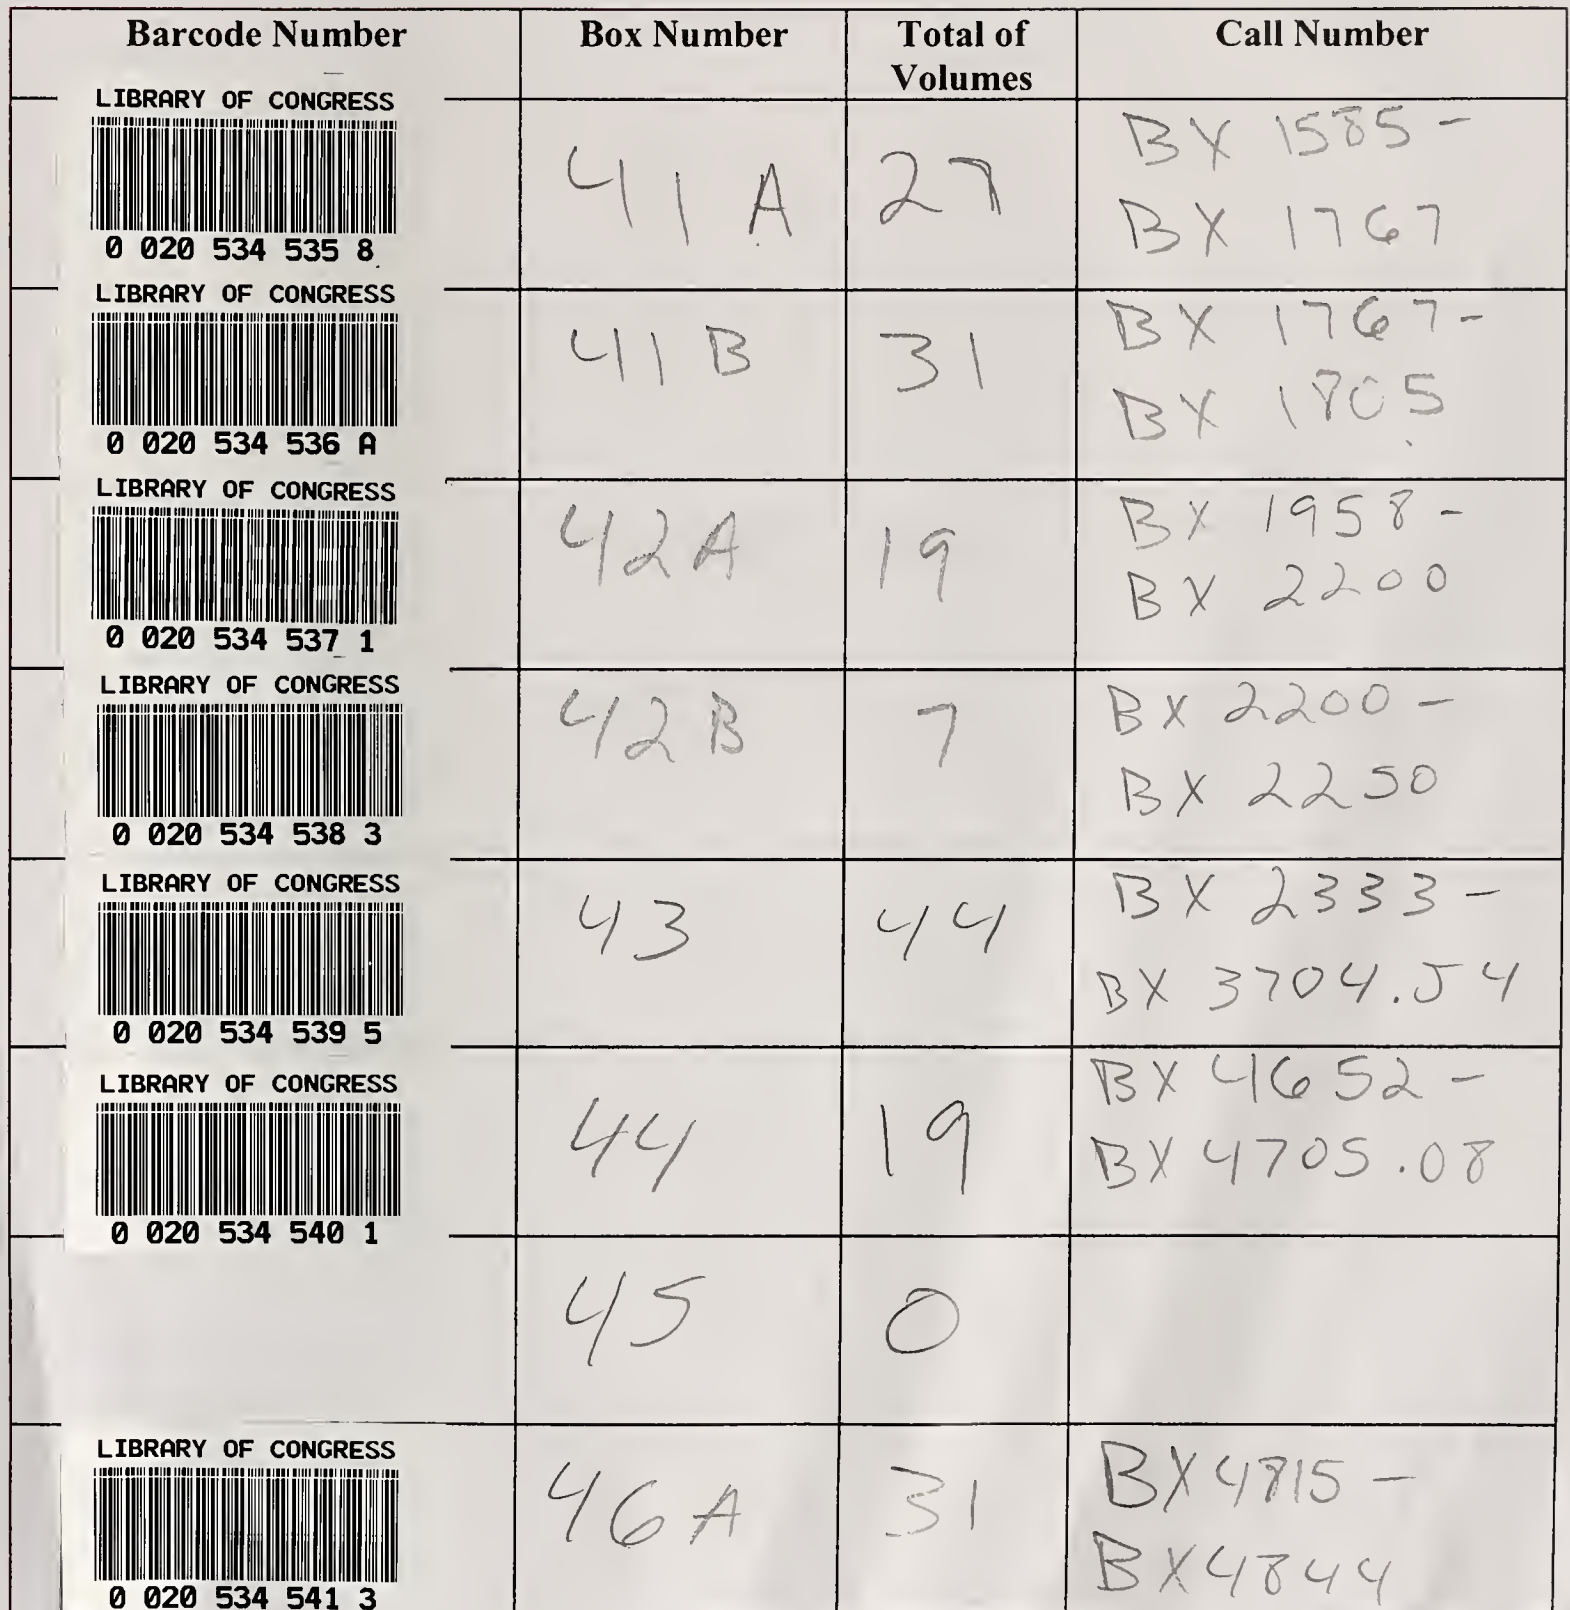 Barcode Number Box Number Total of Volumes Call Number
LIBRARY OF CONGRESS
0 020 534 535 8
41A 27
BX 1585-
BX 1767
LIBRARY OF CONGRESS
0 020 534 536 A
41B 31
BX 1767-
BX 1805
LIBRARY OF CONGRESS
0 020 534 537 1
42A 19
BX 1958-
BX 2200
LIBRARY OF CONGRESS
0 020 534 538 3
42B 7
BX 2200-
BX 2250
LIBRARY OF CONGRESS
0 020 534 539 5
43 44
BX 2333-
BX 3704.J4
LIBRARY OF CONGRESS
0 020 534 540 1
44 19
BX 4652-
BX 4705.08
45 0
LIBRARY OF CONGRESS
0 020 534 541 3
46A 31
BX4815-
BX4844